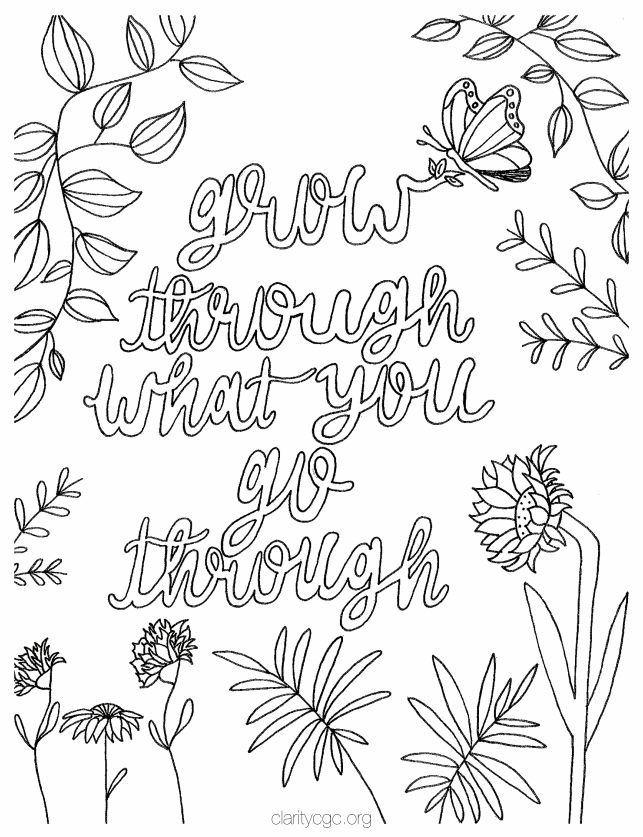 grow
through
what you
go
through
claritycgc.org